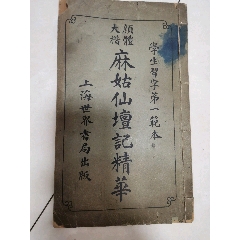 學生習字第一範本
顏體
大楷
麻姑仙壇記精華
上海世界書局出版